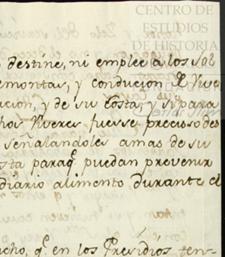 CENTRO DE
ESTUDIOS
DE HISTORIA
destine, ni emplee â los Sol
remontas, y conducion de
ucion, y de su Costa, y si para
hos fuesse, precisso des
señalandoles amas de su
sta paraq.e puedan prevenir
diario alimento durante el
cho, q.e en los Presidios ten-